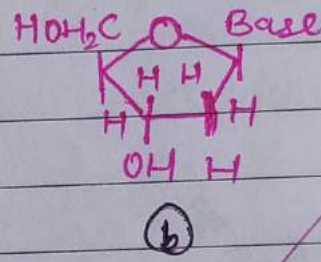 HOH₂C O Base
H H
H H
OH H
b